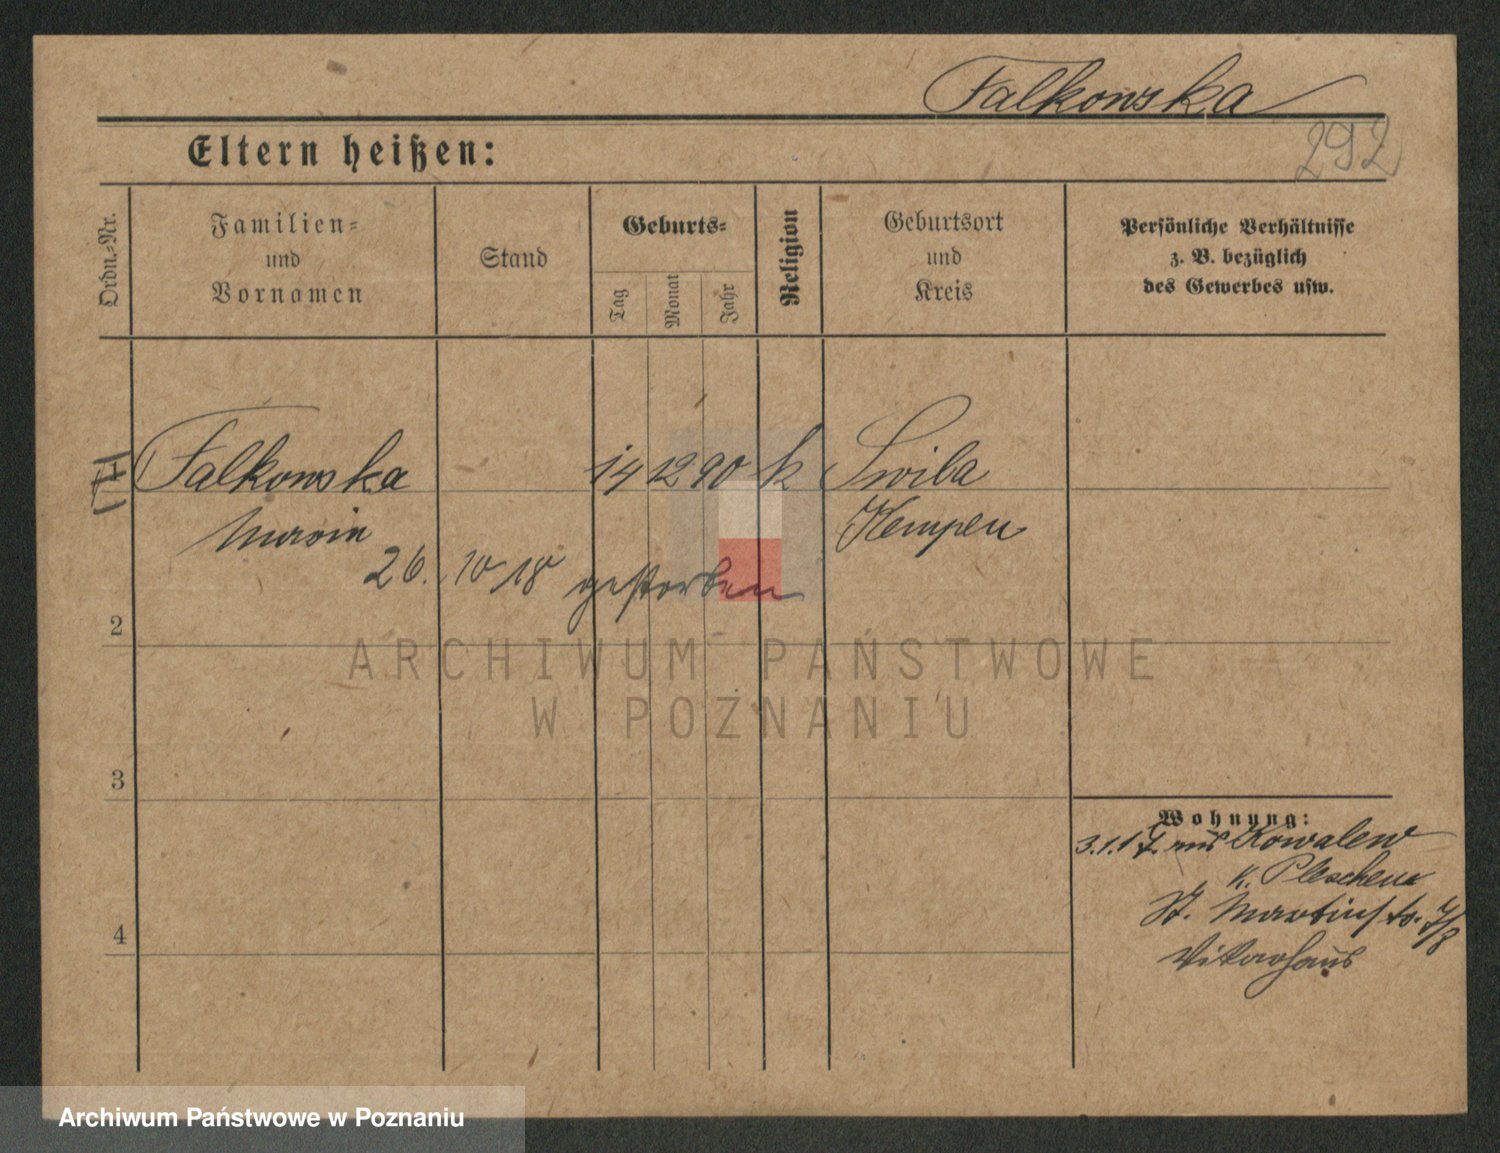 Falkowska
292
Eltern heißen:
Ordn.-Nr.
Familien-
und
Vornamen
Stand
Geburts-
Tag
Monat
Jahr
Religion
Geburtsort
und
Kreis
Persönliche Verhältnisse
z. B. bezüglich
des Gewerbes usw.
Falkowska 14 12 90 k Swiba
Maria Kempen
26. 10 18 gestorben
2
3
4
Wohnung:
3.1.17. aus Kowalew
K. Pleschen
St. Martinstr. 7/8
ARCHIWUM PAŃSTWOWE
W POZNANIU
Archiwum Państwowe w Poznaniu